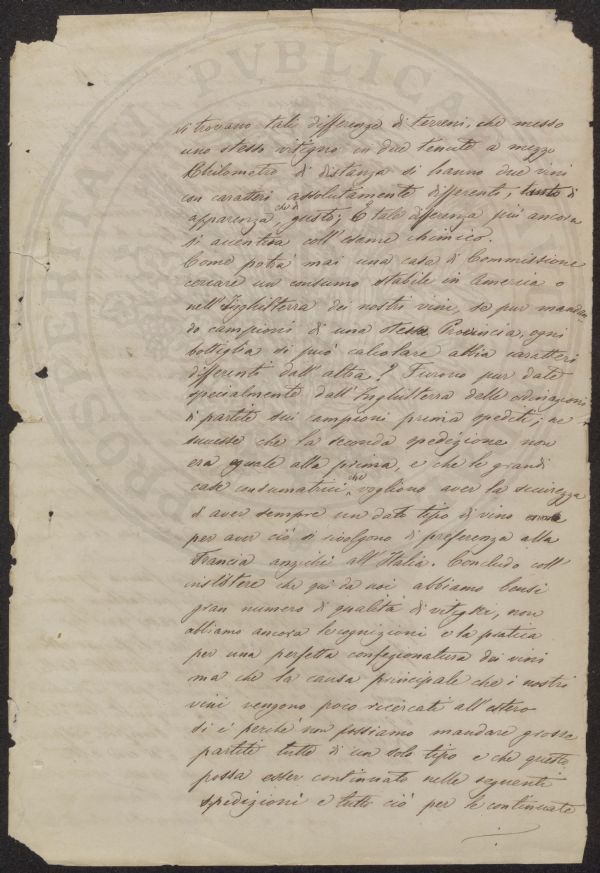 si trovano tali differenze di terreni, che messo
uno stesso vitigno in due tenute a mezzo
Chilometro di distanza si hanno due vini
con caratteri assolutamente differenti, di
apparenza, che di gusto; e tale differenza più ancora
si accentua coll'esame chimico.
Come potrà mai una casa di Commissione
cercare un consumo stabile in America o
nell'Inghilterra dei nostri vini, se pur mandan
do campioni di una stessa Provincia, ogni
bottiglia si può calcolare abbia caratteri
differenti dall'altra? Furono pur date
specialmente dall'Inghilterra delle ordinazioni
di partite sui campioni prima spediti; ne
successe che la seconda spedizione non
era eguale alla prima, e che le grandi
case consumatrici che vogliono aver la sicurezza
d'aver sempre un dato tipo di vino
per aver ciò si rivolgono di preferenza alla
Francia anzichè all'Italia. Concludo coll'
insistere che qui da noi abbiamo bensì
gran numero di qualità di vitigni, non
abbiamo ancora le cognizioni e la pratica
per una perfetta confezionatura dei vini
ma che la causa principale che i nostri
vini vengono poco ricercati all'estero
si è perchè non possiamo mandare grosse
partite tutte di un solo tipo e che questo
possa esser continuato nelle seguenti
spedizioni e tutto ciò per le continuate
PROSPERITATI PVBLICAE